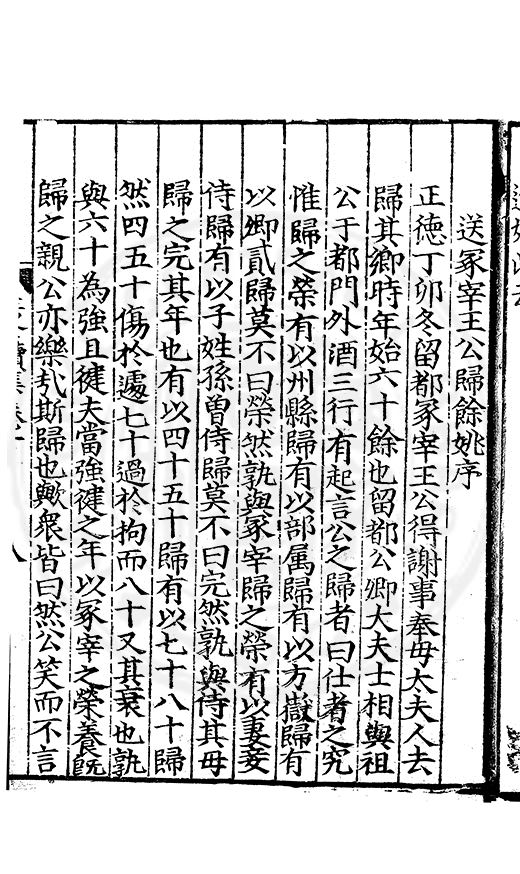 送冢宰王公歸餘姚序
正德丁卯冬留都冢宰王公得謝事奉母太夫人去
歸其鄉時年始六十餘也留都公卿大夫士相與祖
公于都門外酒三行有起言公之歸者曰仕者之究
惟歸之榮有以州縣歸有以部属歸有以方嶽歸有
以卿貳歸莫不曰榮然孰與冢宰歸之榮有以妻妾
侍歸有以子姓孫曾侍歸莫不曰完然孰與侍其母
歸之完其年也有以四十五十歸有以七十八十歸
然四五十傷於遽七十過於拘而八十又其衰也孰
與六十為強且健夫當強健之年以冢宰之榮養既
歸之親公亦樂㢤斯歸也歟衆皆曰然公笑而不言